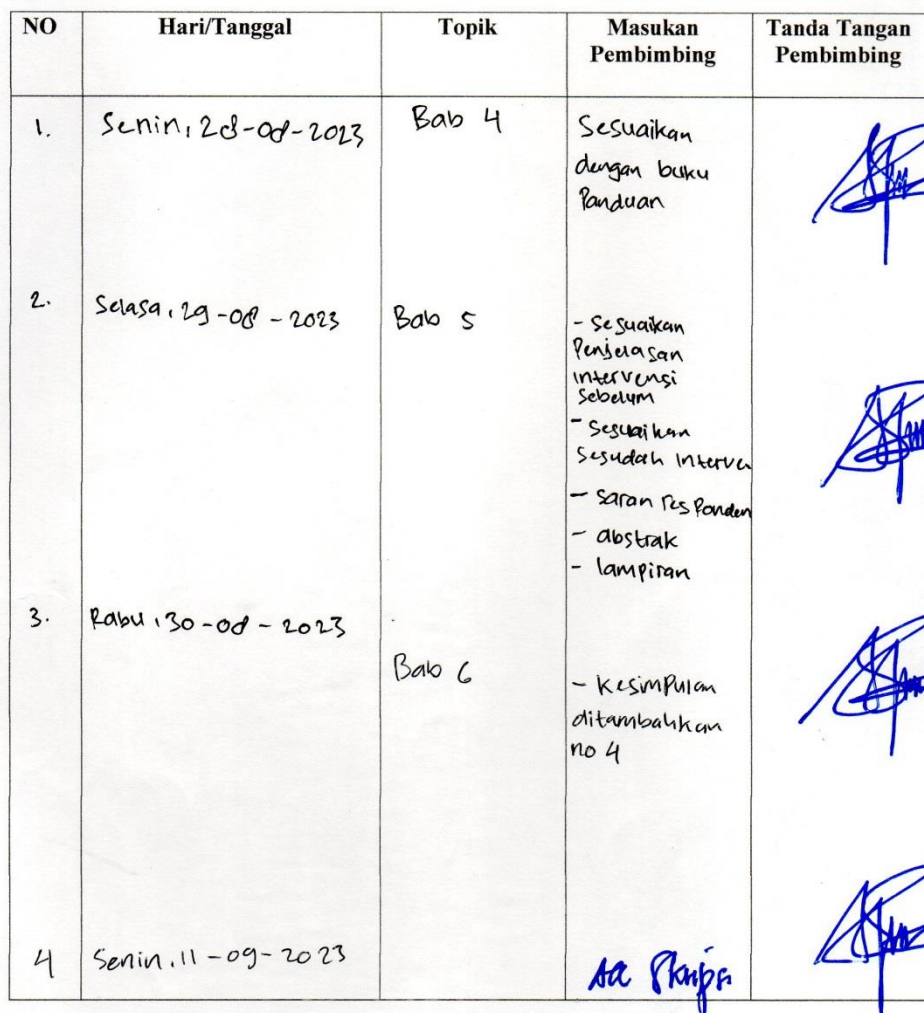 NO Hari/Tanggal Topik Masukan Pembimbing Tanda Tangan Pembimbing
1. Senin, 28-08-2023 Bab 4 Sesuaikan
dengan buku
Panduan
2. Selasa, 29-08-2023 Bab 5 - Sesuaikan
Penjelasan
intervensi
Sebelum
- Sesuaikan
Sesudah interve
- saran responden
- abstrak
- lampiran
3. Rabu, 30-08-2023
Bab 6 - Kesimpulan
ditambahkan
no 4
4 Senin, 11-09-2023 Acc Skripsi